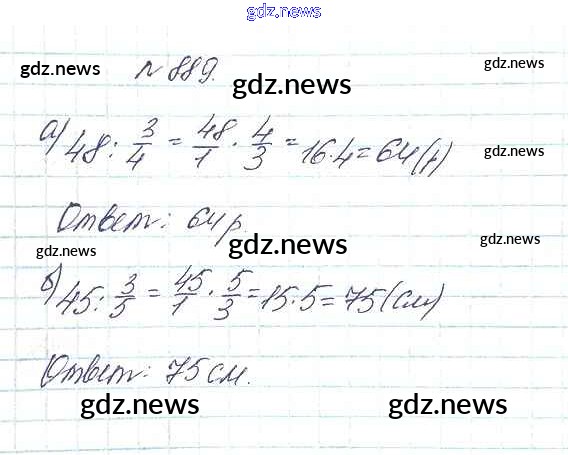 gdz.news
gdz.news № 889. gdz.news gdz.news
а) 48 : 3/4 = 48/1 · 4/3 = 16·4 = 64 (р) gdz.news
Ответ: 64 р.
gdz.news gdz.news gdz.news
б) 45 : 3/5 = 45/1 · 5/3 = 15·5 = 75 (см)
Ответ: 75 см.
gdz.news gdz.news